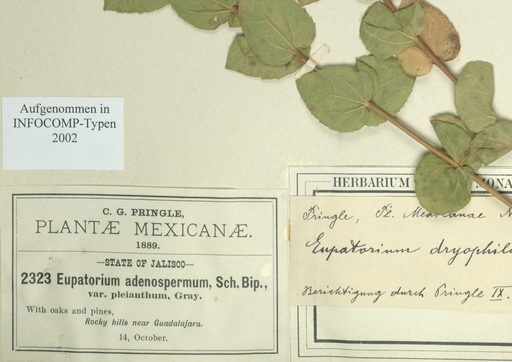 Aufgenommen in
INFOCOMP-Typen
2002
C. G. PRINGLE,
PLANTÆ MEXICANÆ.
1889.
—STATE OF JALISCO—
2323 Eupatorium adenospermum, Sch. Bip.,
var. pleianthum, Gray.
With oaks and pines,
Rocky hills near Guadalajara.
14, October.
HERBARIUM MONA
Pringle, Pl. Mexicanae N
Eupatorium dryophil
Berichtigung durch Pringle IX.